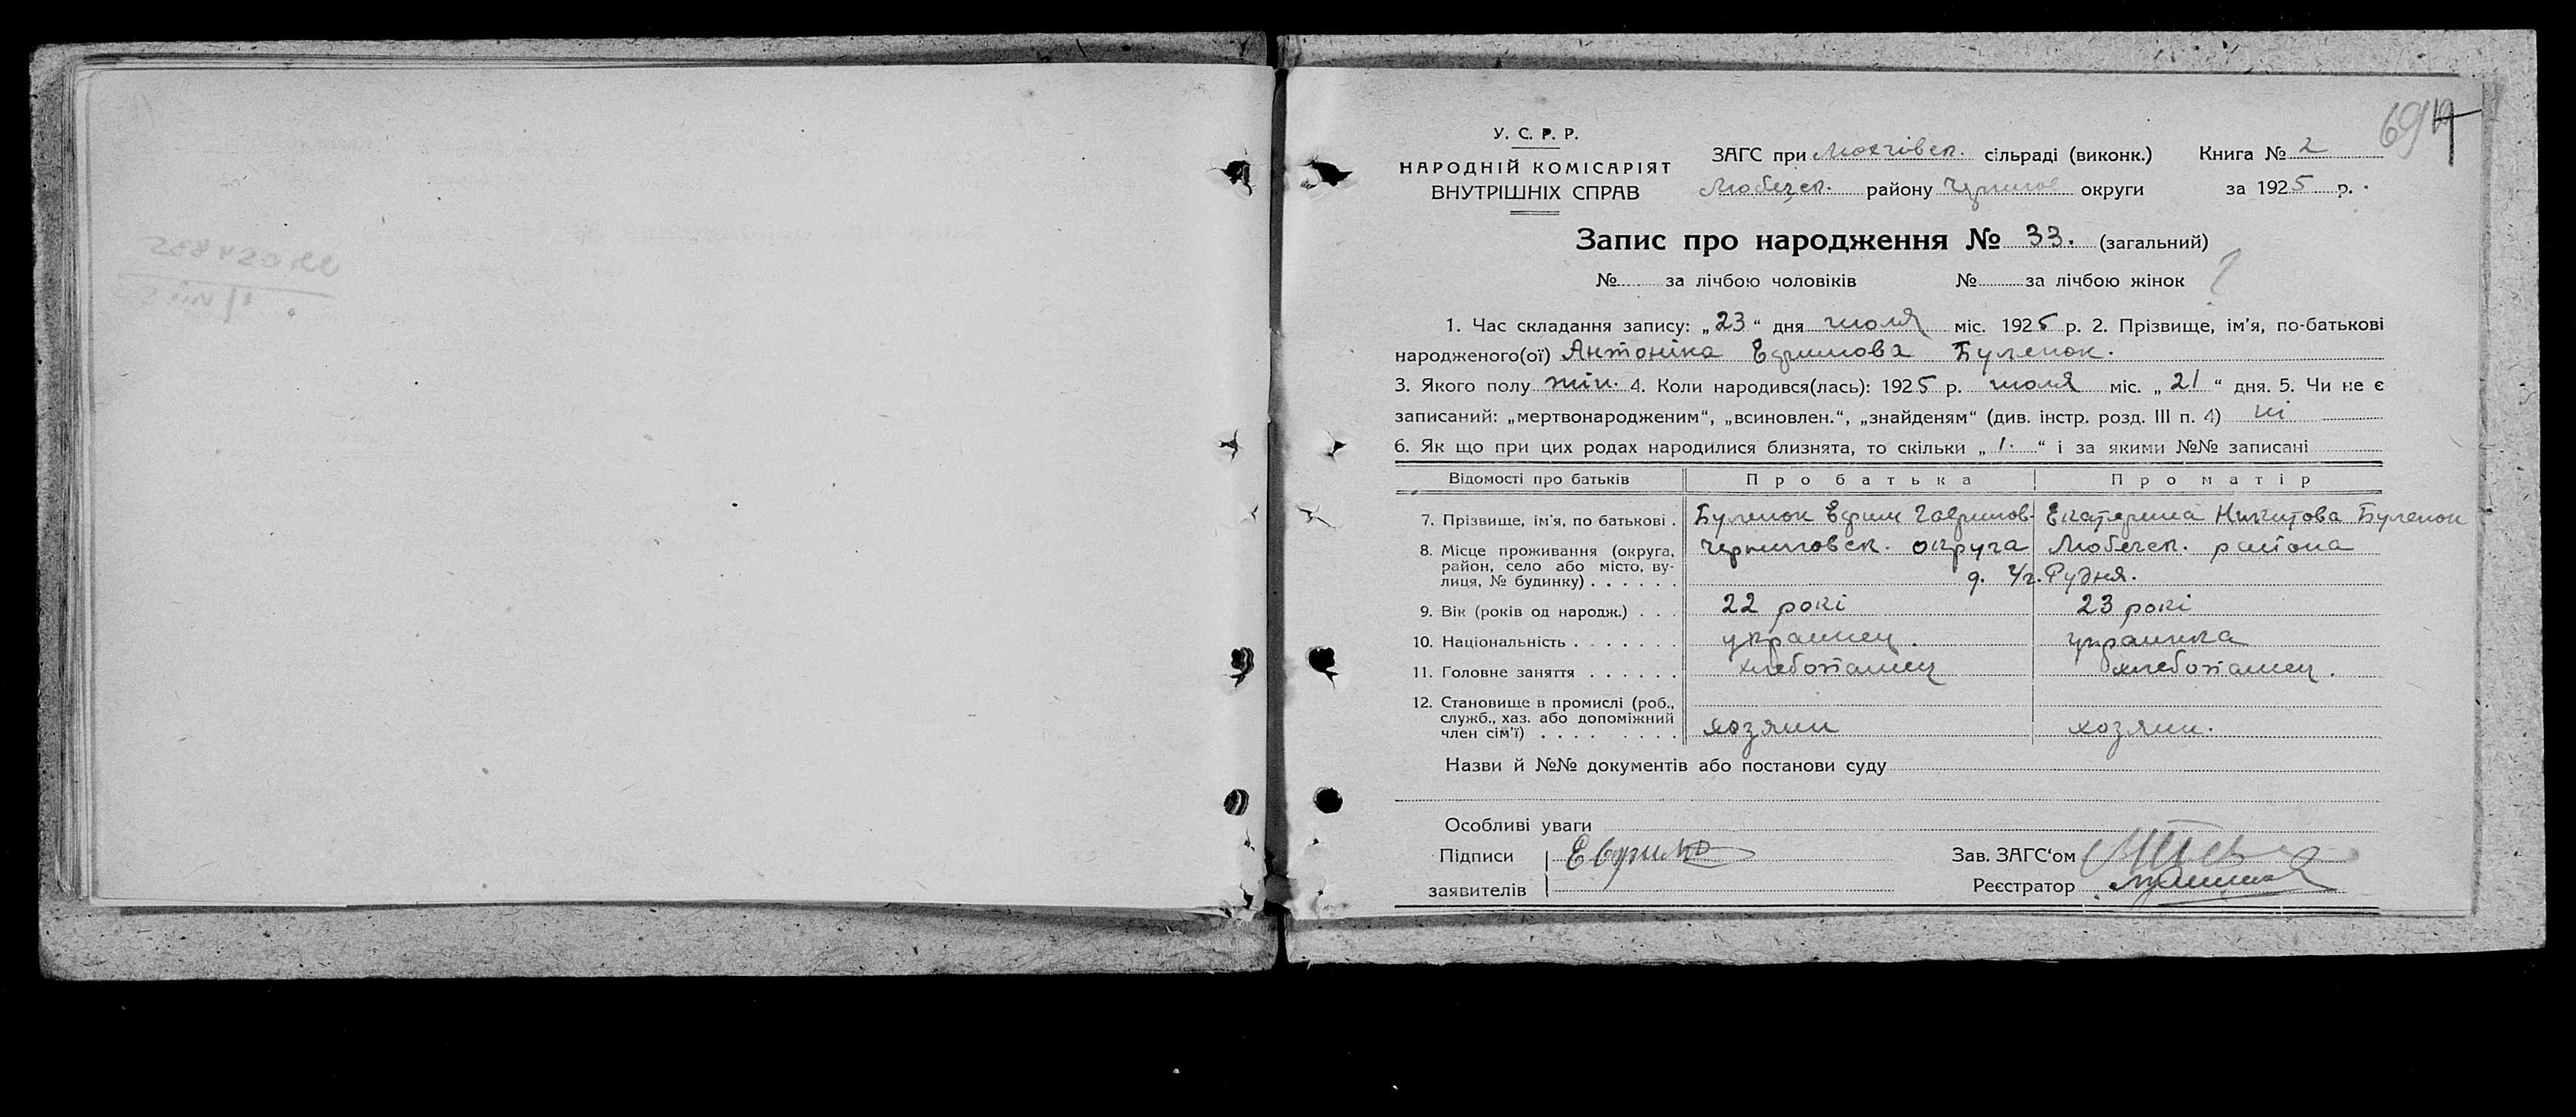 69
У. С. Р. Р.
НАРОДНІЙ КОМІСАРІЯТ
ВНУТРІШНІХ СПРАВ
ЗАГС при Мохнівск. сільраді (виконк.) Книга № 2
Любечск. району Чернигов округи за 1925 р.
Запис про народження № 33. (загальний)
№ за лічбою чоловіків № за лічбою жінок 1
1. Час складання запису: „23“ дня июля міс. 1925 р. 2. Прізвище, ім'я, по-батькові
народженого(ої) Антоніна Ефимова Буленок.
3. Якого полу жін. 4. Коли народився(лась): 1925 р. июля міс. „21“ дня. 5. Чи не є
записаний: „мертвонародженим“, „всиновлен.“, „знайденям“ (див. інстр. розд. III п. 4) ні
6. Як що при цих родах народилися близнята, то скільки „1.“ і за якими №№ записані
Відомості про батьків Про батька Про матір
7. Прізвище, ім'я, по батькові . Буленок Ефим Гаврилов. Екатерина Никитова Буленок
8. Місце проживання (округа, Черниговск. округа Любечск. района
район, село або місто, ву-
лиця, № будинку) . . . . . . Рудня.
9. Вік (років од народж.) . . . 22 рокі 23 рокі
10. Національність . . . . . . . украинец. украинка
11. Головне заняття . . . . . . хлебопашец хлебопашец.
12. Становище в промислі (роб.,
служб., хаз. або допоміжний
член сім'ї) . . . . . . . . . хозяин хозяин.
Назви й №№ документів або постанови суду
Особливі уваги
Підписи Зав. ЗАГС‘ом
заявителів Реєстратор